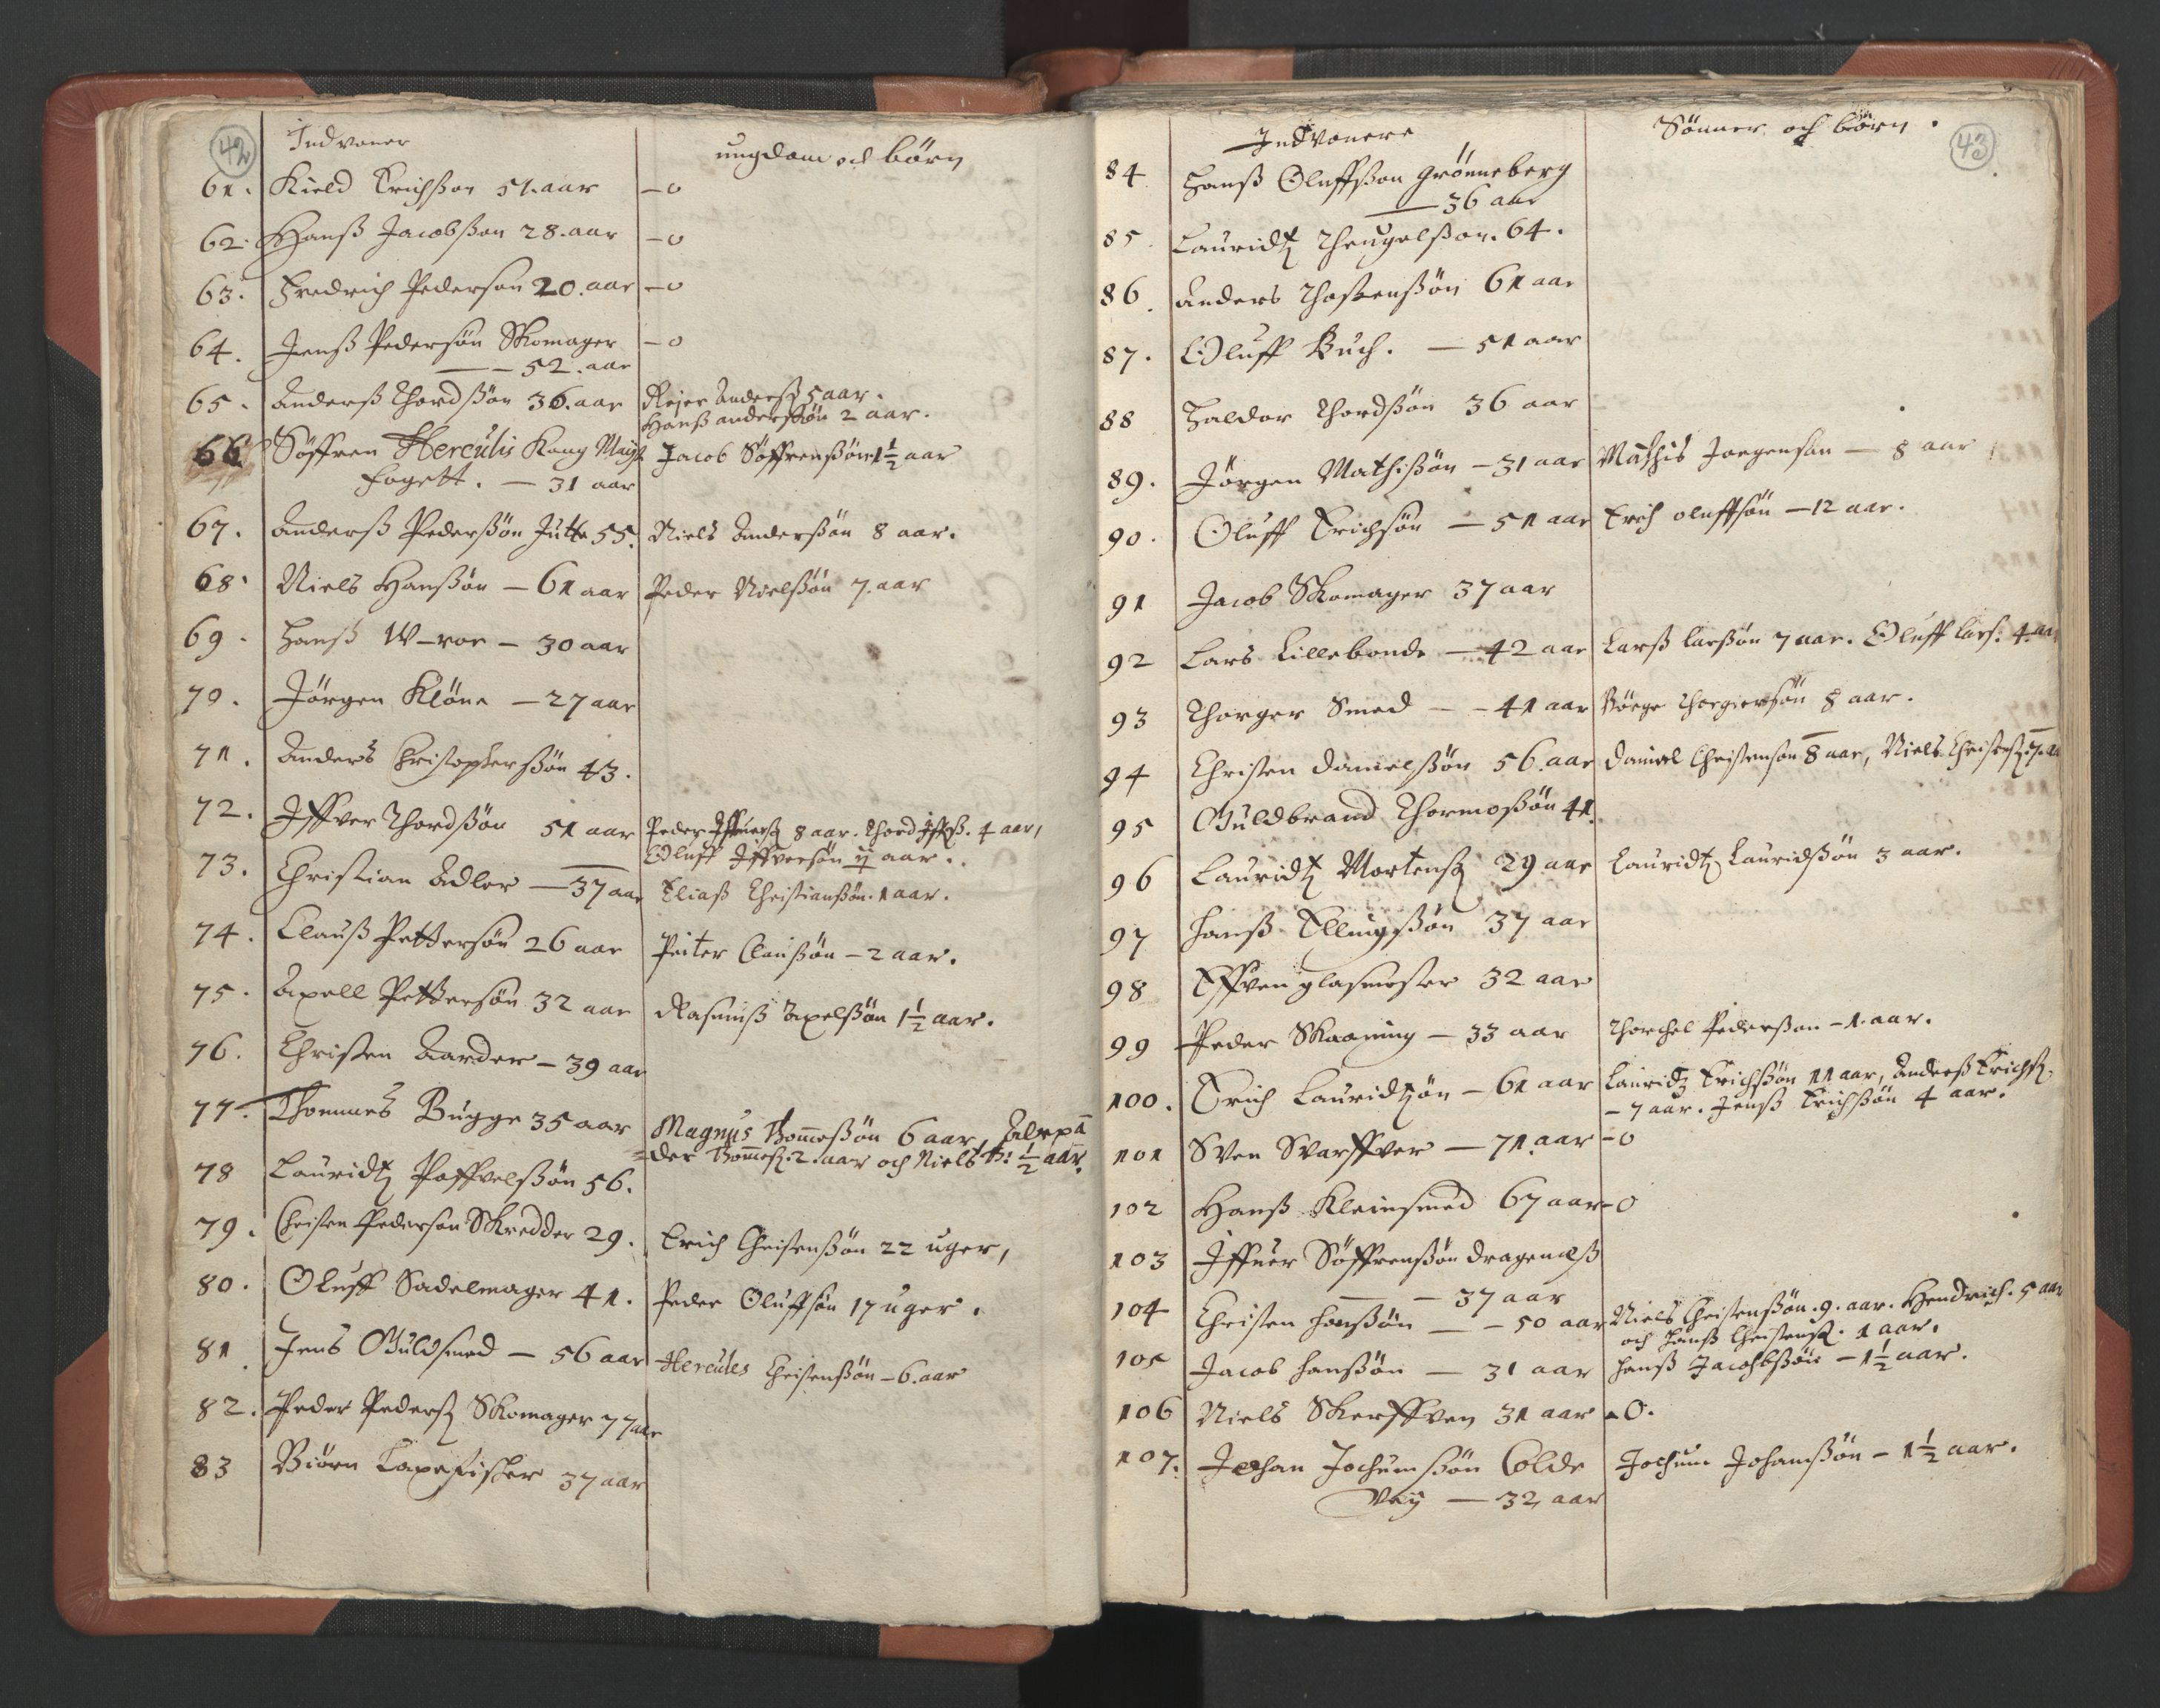 42
Indvoner
ungdom och börn
61. Kield Erichßon 51. aar – 0
62. Hanß Jacobßon 28. aar – 0
63. Fredrich Pederson 20. aar – 0
64. Jenß Pedersön Skomager – 0
— 52. aar
65. Anderß Thordßön 36. aar Rejer Anderß 5 aar.
Hanß anderßön 2 aar.
66 Söffren Herculis Kong May: Jacob Söffrenßön 1½ aar
fogett. — 31 aar
67. Anderß Pederßön Jutte 55. Niels Anderßön 8 aar.
68. Niels Hanßön – 61 aar Peder Nielßön 7. aar
69. Hanß — 30 aar
70. Jörgen Klöne — 27 aar
71. Anders Christopherßön 43.
72. Iffver Thordßön 51 aar Peder Iffverß 8 aar. Thord Iffß. 4 aar,
Oluff Iffversön aar.
73. Christian Adler — 37 aar Eliaß Christianßön. 1 aar.
74. Clauß Pettersön 26 aar Peiter Claußön – 2 aar.
75. Axell Pettersön 32 aar Rasmuß Axelßön 1½ aar.
76. Christen Aarder – 39 aar
77. Thommes Bugge 35 aar Magnus Thommeßön 6 aar, Alexan
=der Thommeß. 2. aar och Niels Th: ½ aar.
78 Lauridtz Poffvelßön 56.
79. Christen Pederson Skredder 29. Erich Christenßön 22 uger,
80. Oluff Sadelmager 41. Peder Oluffsön 17 uger.
81. Jens Guldsmed — 56 aar Hercules Christenßön – 6. aar
82. Peder Pederß Skomager 77 aar
83 Biörn Taxefisker 37 aar
43
Indvonere
Sönner och börn.
84 Hanß Oluffßon Grönneberg
— 36 aar
85. Lauridtz Theugelßon. 64.
86. Anders Thostenßön 61 aar
87. Oluff Buch. — 51 aar
88 Haldor Thordßön 36 aar
89. Jörgen Mathißön – 31 aar Mathis Joegensön — 8 aar
90. Oluff Erichsön — 51 aar Erich oluffsön – 12 aar.
91 Jacob Skomager 37 aar
92 Lars Lillebonde — 42 aar Larß larßön 7 aar. Oluff lars: 4 aar
93 Thorger Smed – – 41 aar Börge Thorgiersön 8 aar.
94 Christen Danielßön 56. aar Daniel Christensön 8 aar, Niels Christenß. 7. aa
95 Guldbrand Thormoßön 41.
96 Lauridtz Mortenß 29 aar Lauridtz Lauridßön 3 aar.
97 Hanß Ellingßön 37 aar
98 Effven glasmester 32 aar
99 Peder Skaaning – 33 aar Thorchel Pederßon – 1. aar.
100. Erich Lauridtzön – 61 aar Lauridtz Erichßön 11 aar, Anderß Erichß.
– 7 aar. Jenß Erichßön 4 aar.
101 Sven Svarffver — 71. aar – 0
102 Hanß Kleinsmed 67 aar – 0
103 Iffuer Söffrenßön Dragenæß
— — 37 aar
104 Christen Hanßön — – 50 aar Niels Christenßön. 9. aar. Hendrich. 5 aar
och Hanß Christenß. 1 aar.
105 Jacob Hanßön — 31 aar Hanß Jacobßön – 1½ aar.
106 Niels Skerffven 31 aar – 0.
107. Johan Jochumßön Colde Jochum Johanßön – 1½ aar.
Veÿ — 32 aar